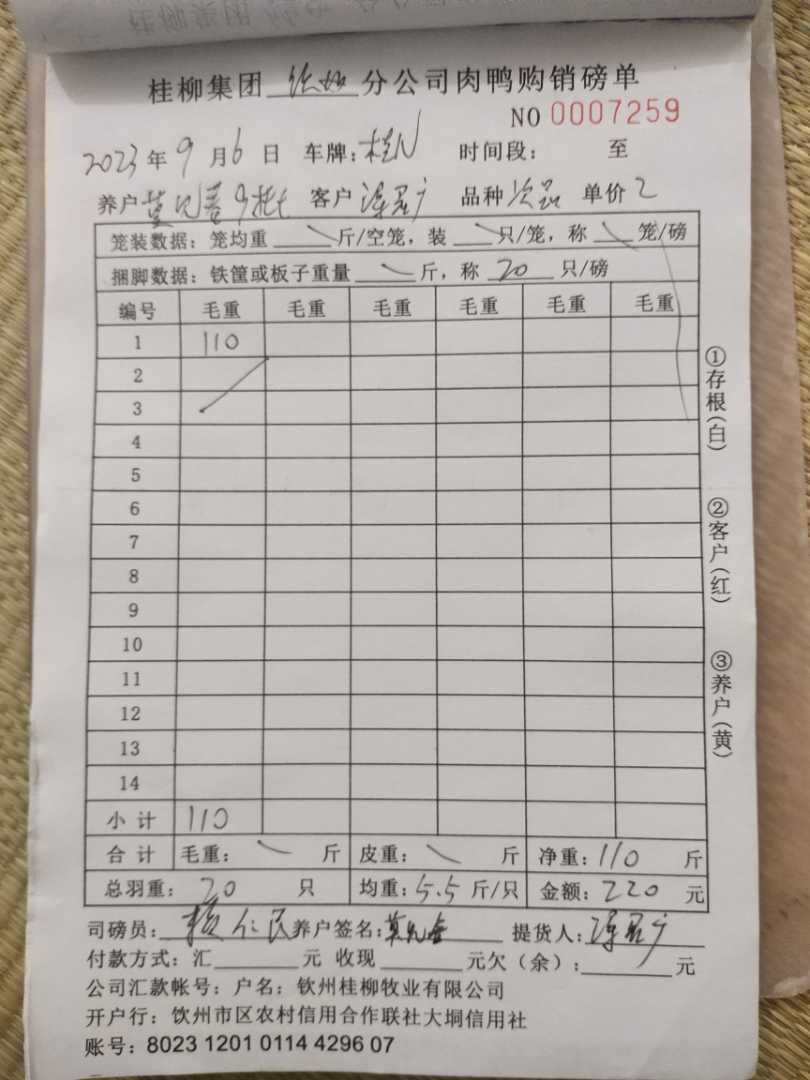 桂柳集团 钦州 分公司肉鸭购销磅单
NO 0007259
2023 年 9 月 6 日 车牌：桂N 时间段： 至
养户 9批 客户 品种 次品 单价 2
笼装数据：笼均重 斤/空笼，装 只/笼，称 笼/磅
捆脚数据：铁筐或板子重量 斤，称 20 只/磅
编号 毛重 毛重 毛重 毛重 毛重 毛重
1 110
2
3
4
5
6
7
8
9
10
11
12
13
14
小 计 110
合 计 毛重： 斤 皮重： 斤 净重：110 斤
总羽重： 20 只 均重：5.5 斤/只 金额：220 元
司磅员： 仁民 养户签名： 提货人：
付款方式：汇 元 收现 元欠（余）： 元
公司汇款帐号：户名：钦州桂柳牧业有限公司
开户行：饮州市区农村信用合作联社大垌信用社
账号：8023 1201 0114 4296 07
①存根（白）
②客户（红）
③养户（黄）